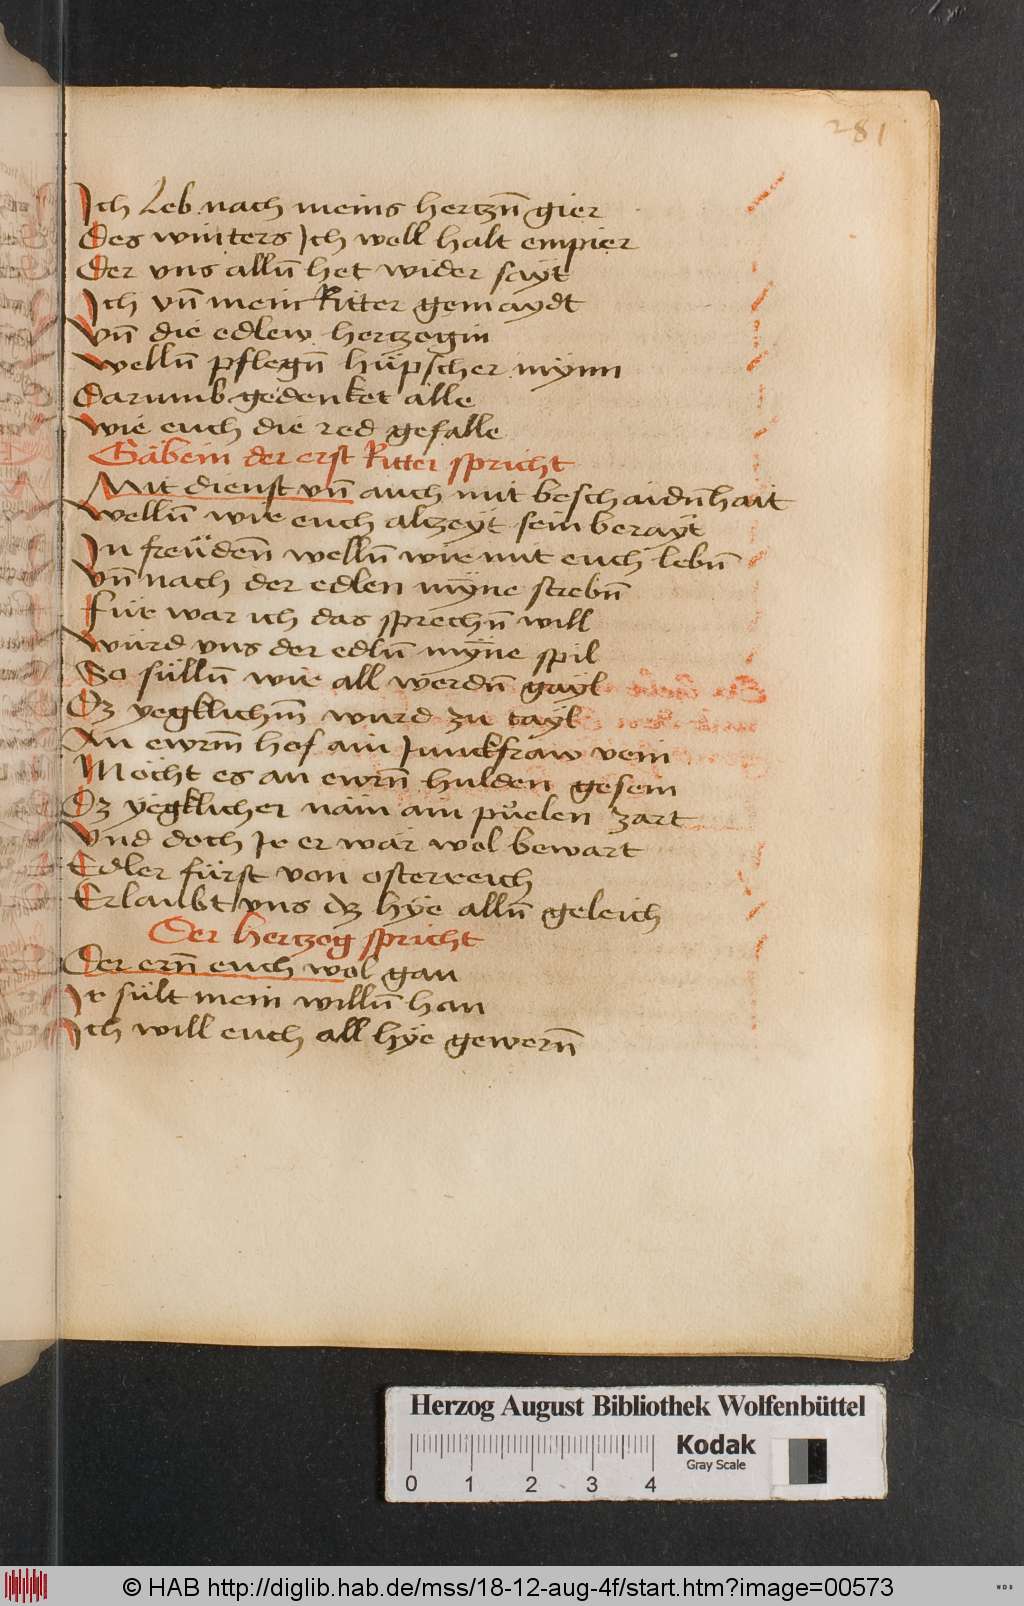 281
Ich Leb nach meins hertzn̄ gier
Des winters Ich woll halt empier
Der vns alln̄ het wider sayt
Ich vn̄ mein Ritter gemaydt
vn̄ die edlew hertzogin
welln̄ pflegn̄ hüpscher mynn
Darumb gedenket alle
wie euch die red gefalle
Gäbein der erst Ritter spricht
Mit dienst vn̄ auch mit beschaidn̄hait
welln̄ wir euch alzeyt sein berayt
In freüden̄ welln̄ wir mit euch lebn̄
vn̄ nach der edlen myne strebn̄
für war ich das sprechn̄ will
würd vns der edln̄ mÿne spil
So sülln̄ wir all werdn̄ gayl
Dz yegklichm̄ wurd zu tayl
An ewrm̄ hof ain Junckfraw vein
Möcht es an ewrn̄ hulden gesein
Dz yegklicher näm ain puelen zart
Vnd doch Ir er wär wol bewart
Edler fürst von osterreich
Erlaubt vns dz hye alln̄ geleich
Der hertzog spricht
Der ern̄ euch wol gan
Ir sült mein willn̄ han
Ich will euch all hÿe gewern̄
Herzog August Bibliothek Wolfenbüttel
Kodak
Gray Scale
0 1 2 3 4
© HAB http://diglib.hab.de/mss/18-12-aug-4f/start.htm?image=00573